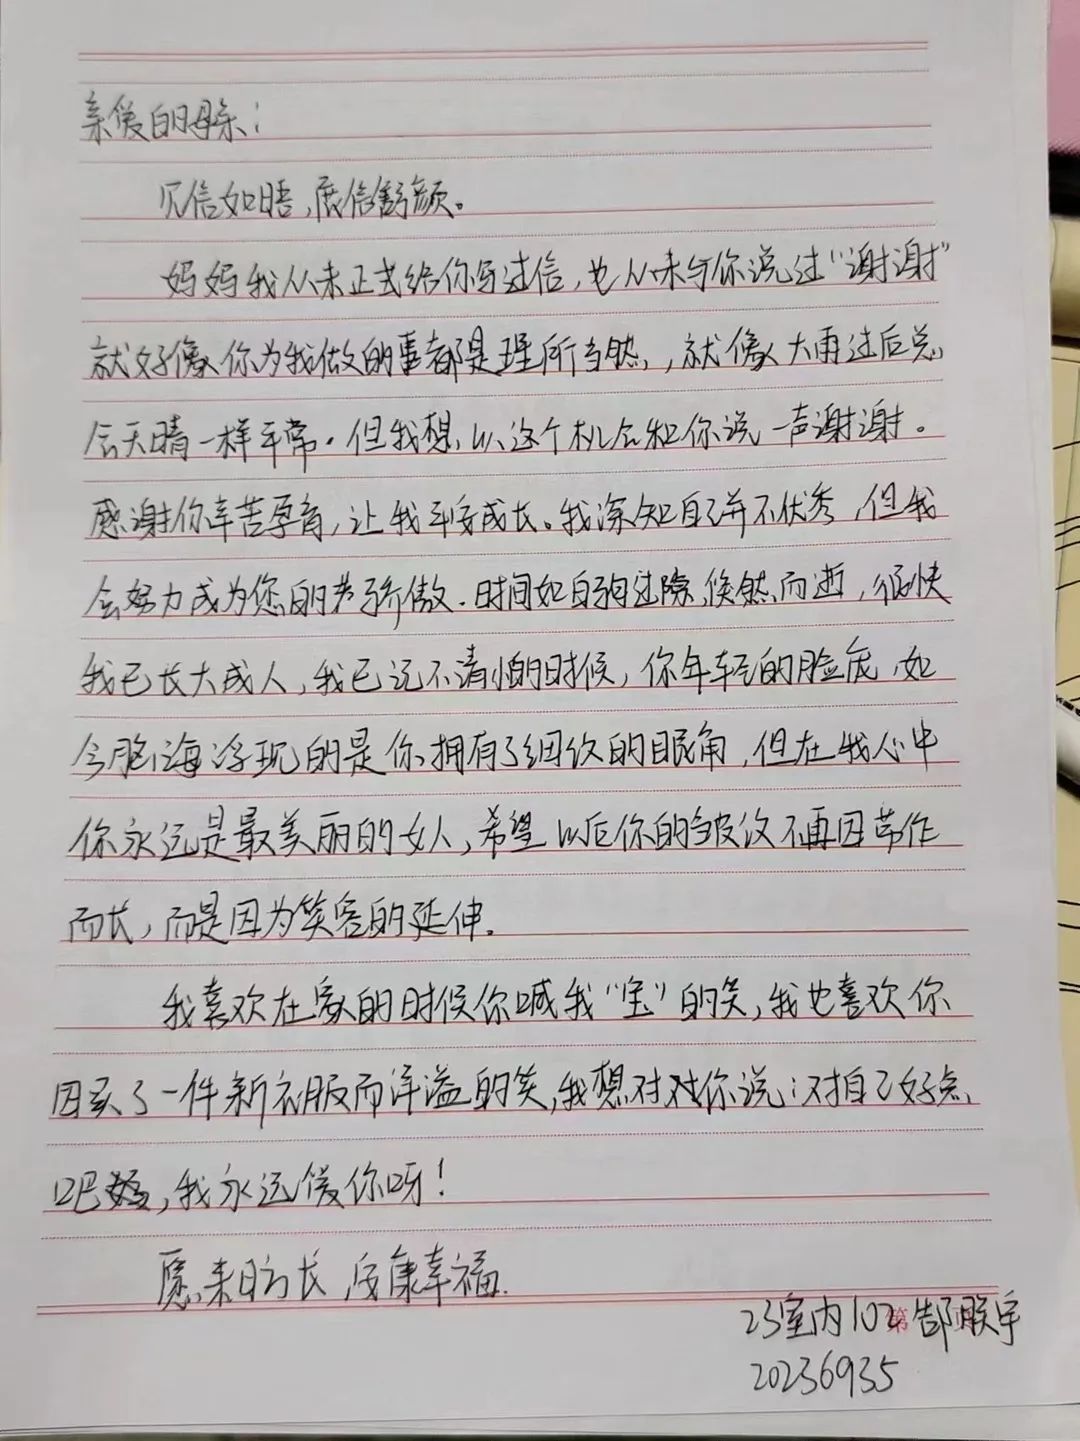 亲爱的母亲：
见信如晤，展信舒颜。
妈妈我从未正式给你写过信，也从未与你说过“谢谢”
就好像你为我做的事都是理所当然，，就像大雨过后总
会天晴一样平常。但我想，以这个机会和你说一声谢谢。
感谢你辛苦孕育，让我平安成长。我深知自己并不优秀，但我
会努力成为您的骄傲．时间如白驹过隙，倏然而逝，很快
我已长大成人，我已记不清你的时候，你年轻的脸庞，如
今脑海浮现的是你拥有了细纹的眼角，但在我心中
你永远是最美丽的女人，希望以后你的皱纹不再因劳作
而长，而是因为笑容的延伸．
我喜欢在家的时候你喊我“宝”的笑，我也喜欢你
因买了一件新衣服而洋溢的笑，我想对对你说：对自己好点
吧，我永远爱你呀！
愿来日方长，安康幸福．
第 页
23室内102 郜联宇
20236935